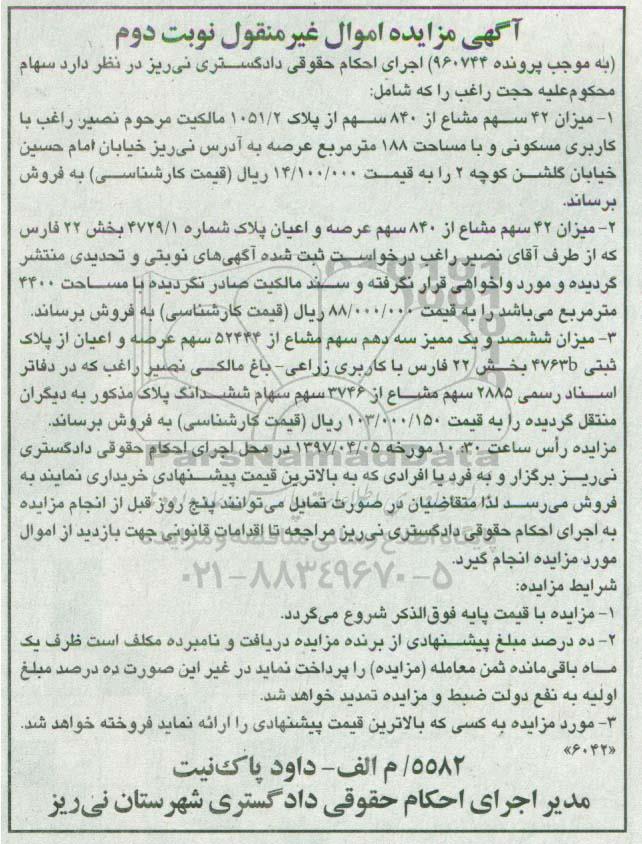 آگهی مزایده اموال غیرمنقول نوبت دوم
(به موجب پرونده ۹۶۰۷۴۴) اجرای احکام حقوقی دادگستری نی‌ریز در نظر دارد سهام
محکوم‌علیه حجت راغب را که شامل:
۱- میزان ۴۲ سهم مشاع از ۸۴۰ سهم از پلاک ۱۰۵۱/۲ مالکیت مرحوم نصیر راغب با
کاربری مسکونی و با مساحت ۱۸۸ مترمربع عرصه به آدرس نی‌ریز خیابان امام حسین
خیابان گلشن کوچه ۲ را به قیمت ۱۴/۱۰۰/۰۰۰ ریال (قیمت کارشناسی) به فروش
برساند.
۲- میزان ۴۲ سهم مشاع از ۸۴۰ سهم عرصه و اعیان پلاک شماره ۴۷۲۹/۱ بخش ۲۲ فارس
که از طرف آقای نصیر راغب درخواست ثبت شده آگهی‌های نوبتی و تحدیدی منتشر
گردیده و مورد واخواهی قرار نگرفته و سند مالکیت صادر نگردیده با مساحت ۴۴۰۰
مترمربع می‌باشد را به قیمت ۸۸/۰۰۰/۰۰۰ ریال (قیمت کارشناسی) به فروش برساند.
۳- میزان ششصد و یک ممیز سه دهم سهم مشاع از ۵۲۴۴۴ سهم عرصه و اعیان از پلاک
ثبتی ۴۷۶۳b بخش ۲۲ فارس با کاربری زراعی- باغ مالکی نصیر راغب که در دفاتر
اسناد رسمی ۲۸۸۵ سهم مشاع از ۳۷۴۶ سهم سهام ششدانگ پلاک مذکور به دیگران
منتقل گردیده را به قیمت ۱۰۳/۰۰۰/۱۵۰ ریال (قیمت کارشناسی) به فروش برساند.
مزایده رأس ساعت ۱۰:۳۰ مورخه ۱۳۹۷/۰۴/۰۵ در محل اجرای احکام حقوقی دادگستری
نی‌ریز برگزار و به فرد یا افرادی که به بالاترین قیمت پیشنهادی خریداری نمایند به
فروش می‌رسد لذا متقاضیان در صورت تمایل می‌توانند پنج روز قبل از انجام مزایده
به اجرای احکام حقوقی دادگستری نی‌ریز مراجعه تا اقدامات قانونی جهت بازدید از اموال
مورد مزایده انجام گیرد.
۰۲۱-۸۸۳۴۹۶۷۰-۵
شرایط مزایده:
۱- مزایده با قیمت پایه فوق‌الذکر شروع می‌گردد.
۲- ده درصد مبلغ پیشنهادی از برنده مزایده دریافت و نامبرده مکلف است ظرف یک
ماه باقی‌مانده ثمن معامله (مزایده) را پرداخت نماید در غیر این صورت ده درصد مبلغ
اولیه به نفع دولت ضبط و مزایده تمدید خواهد شد.
۳- مورد مزایده به کسی که بالاترین قیمت پیشنهادی را ارائه نماید فروخته خواهد شد.
«۶۰۴۲»
۵۵۸۲/ م الف- داود پاک‌نیت
مدیر اجرای احکام حقوقی دادگستری شهرستان نی‌ریز